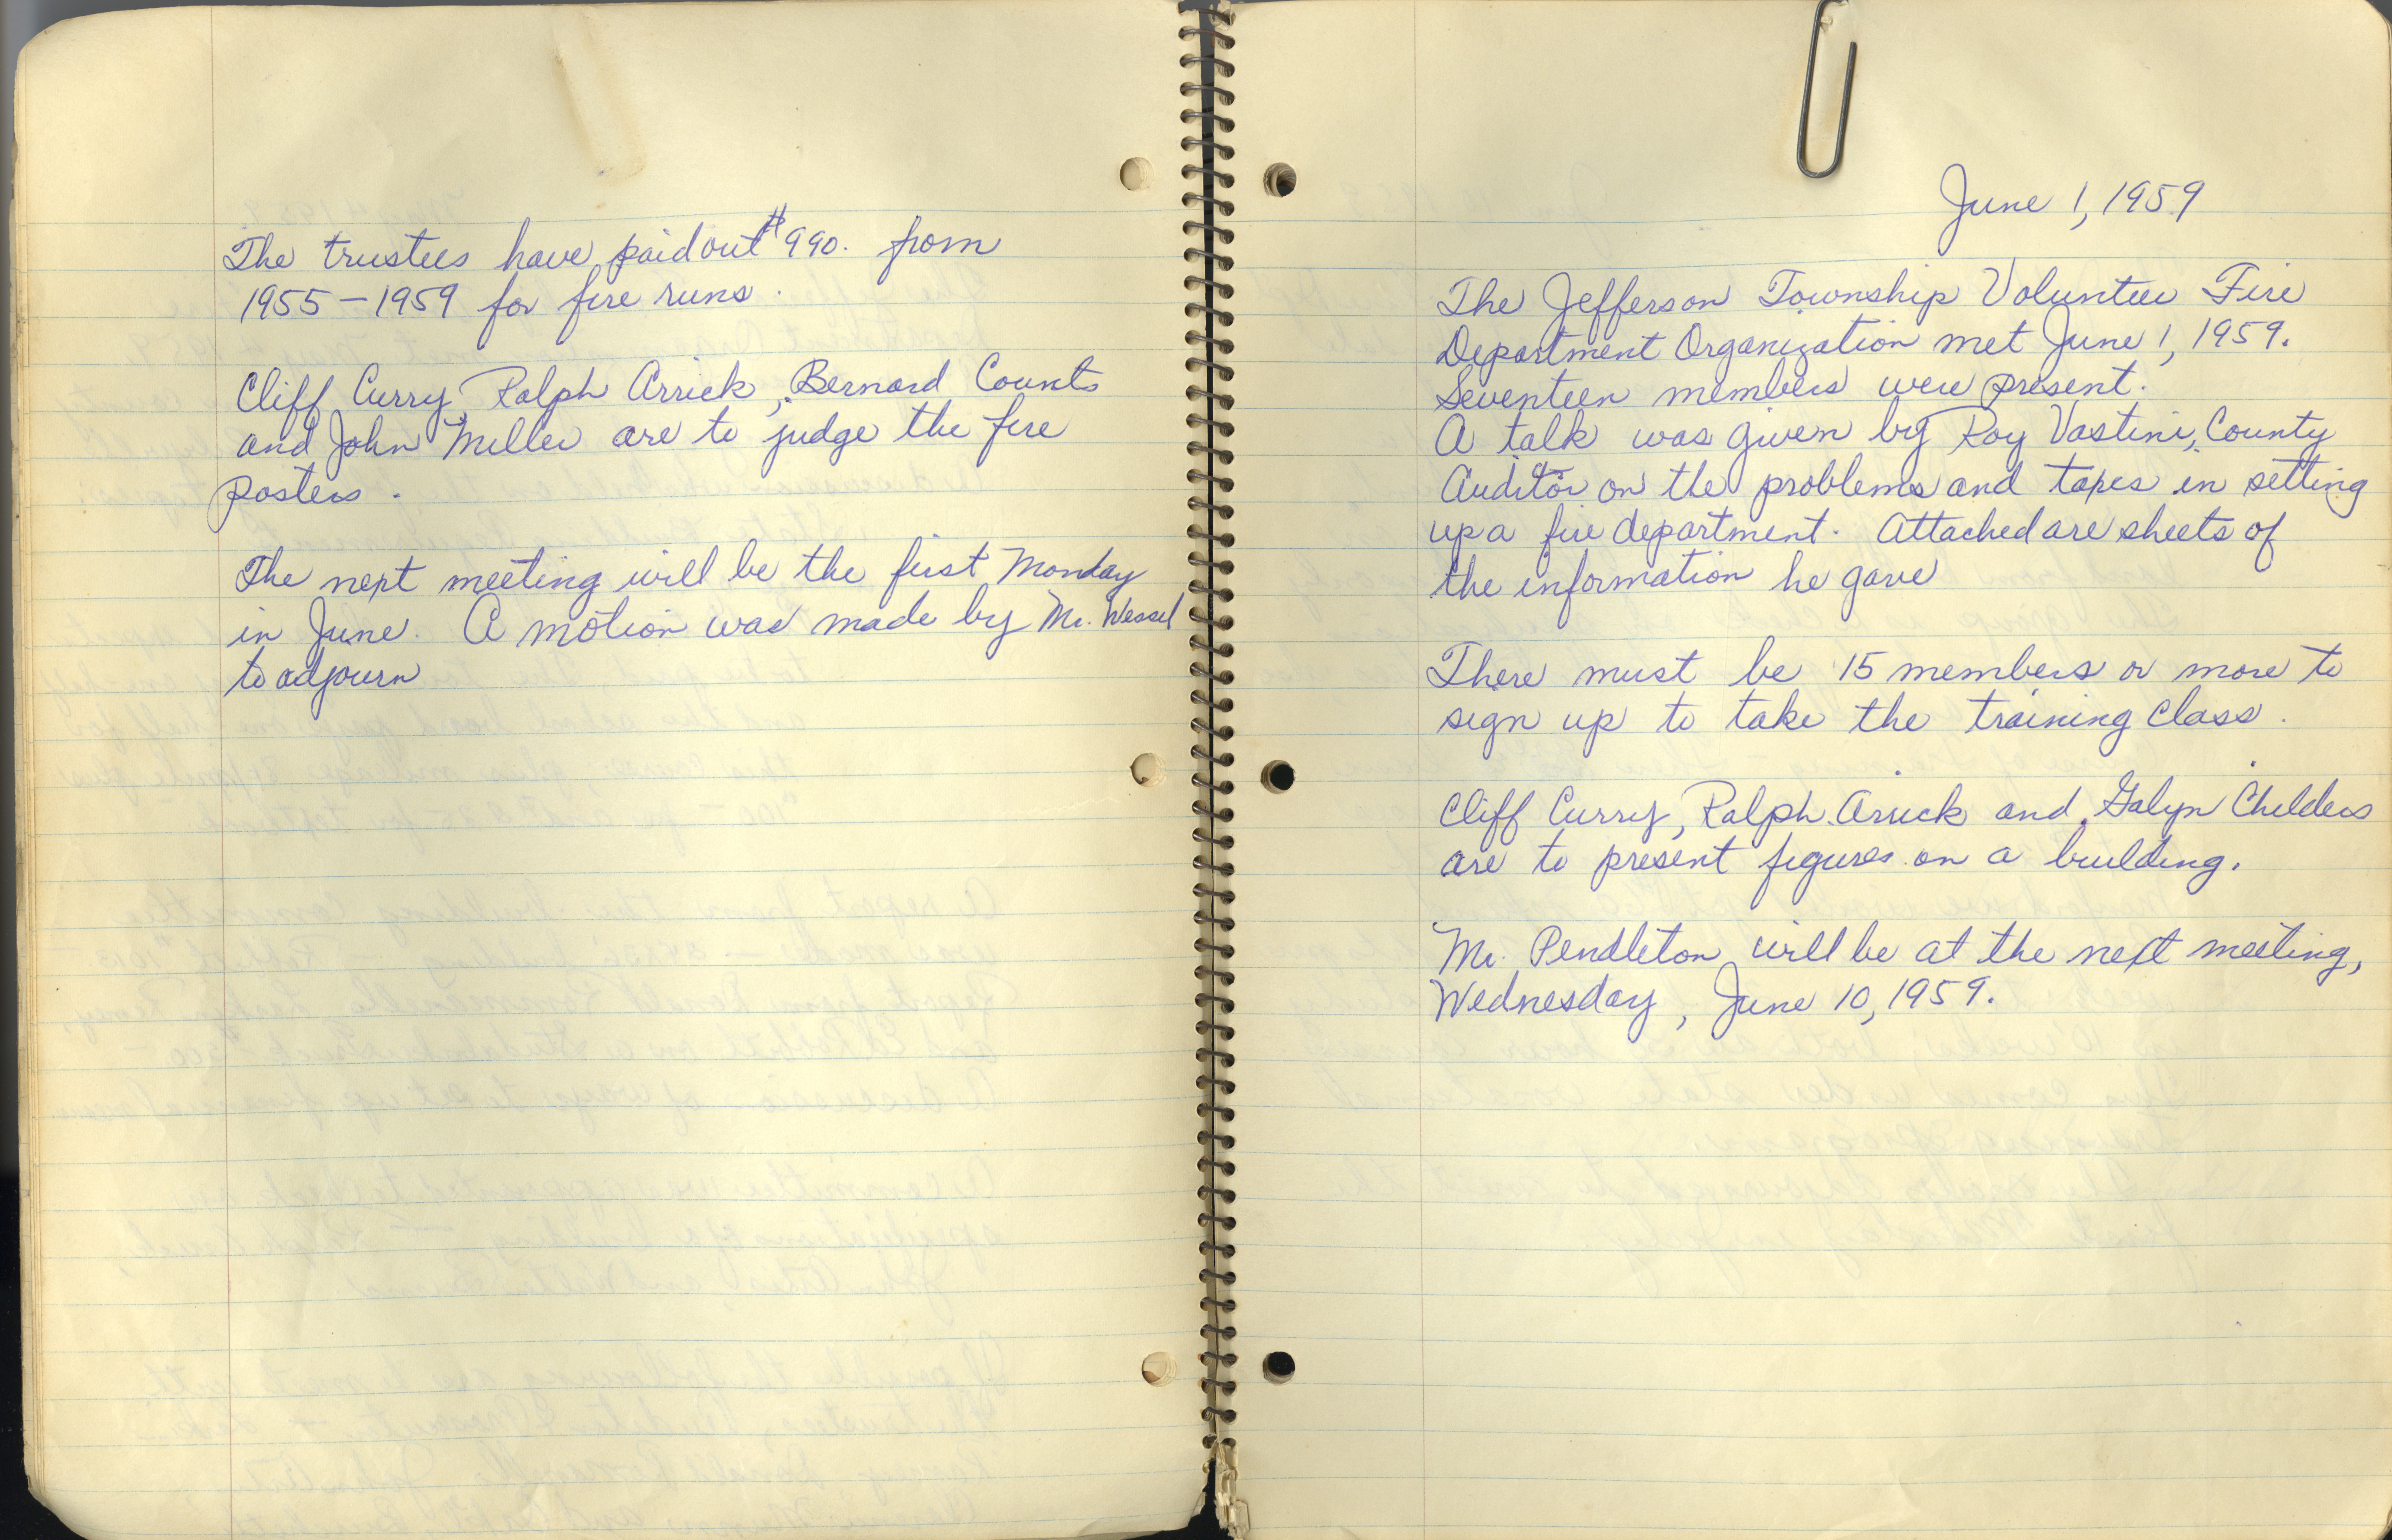 The trustees have paid out $990. from
1955 – 1959 for fire runs.
Cliff Curry, Ralph Arrick, Bernard Counts
and John Miller are to judge the fire
posters.
The next meeting will be the first Monday
in June. A motion was made by Mr. Wessel
to adjourn
June 1, 1959
The Jefferson Township Volunteer Fire
Department Organization met June 1, 1959.
Seventeen members were present.
A talk was given by Roy Vastini, County
Auditor on the problems and taxes in setting
up a fire department. Attached are sheets of
the information he gave
There must be 15 members or more to
sign up to take the training class.
Cliff Curry, Ralph Arrick and Galyn Childers
are to present figures on a building.
Mr. Pendleton will be at the next meeting,
Wednesday, June 10, 1959.